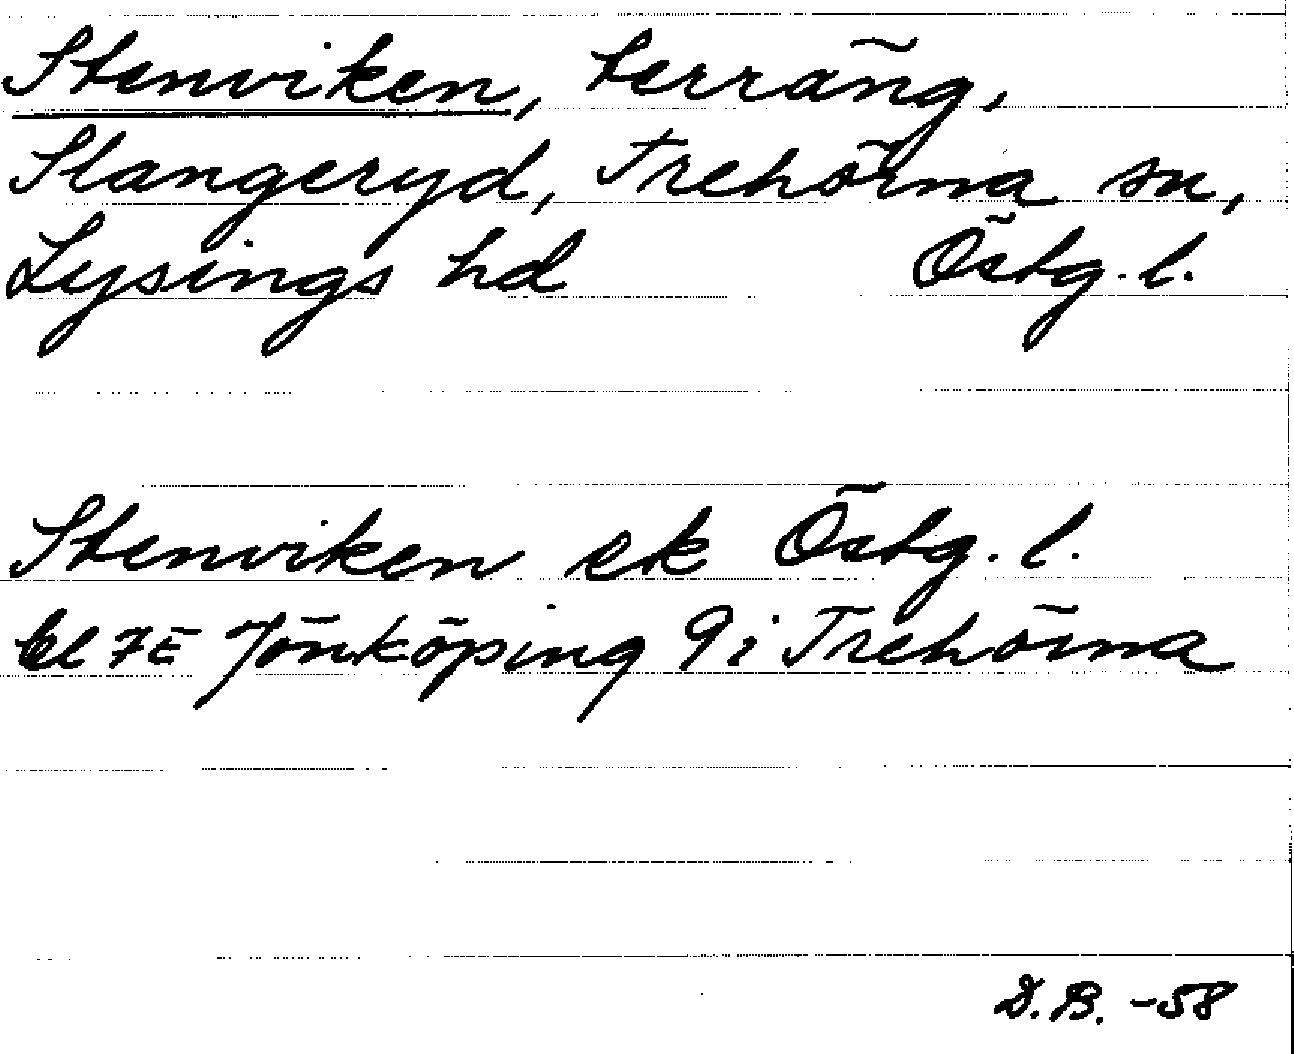 Stenviken, terräng,
Slangeryd, Trehörna sn,
Lysings hd Östg. l.
Stenviken ek Östg. l.
bl 7E Jönköping 9i Trehörna
D.B. -58